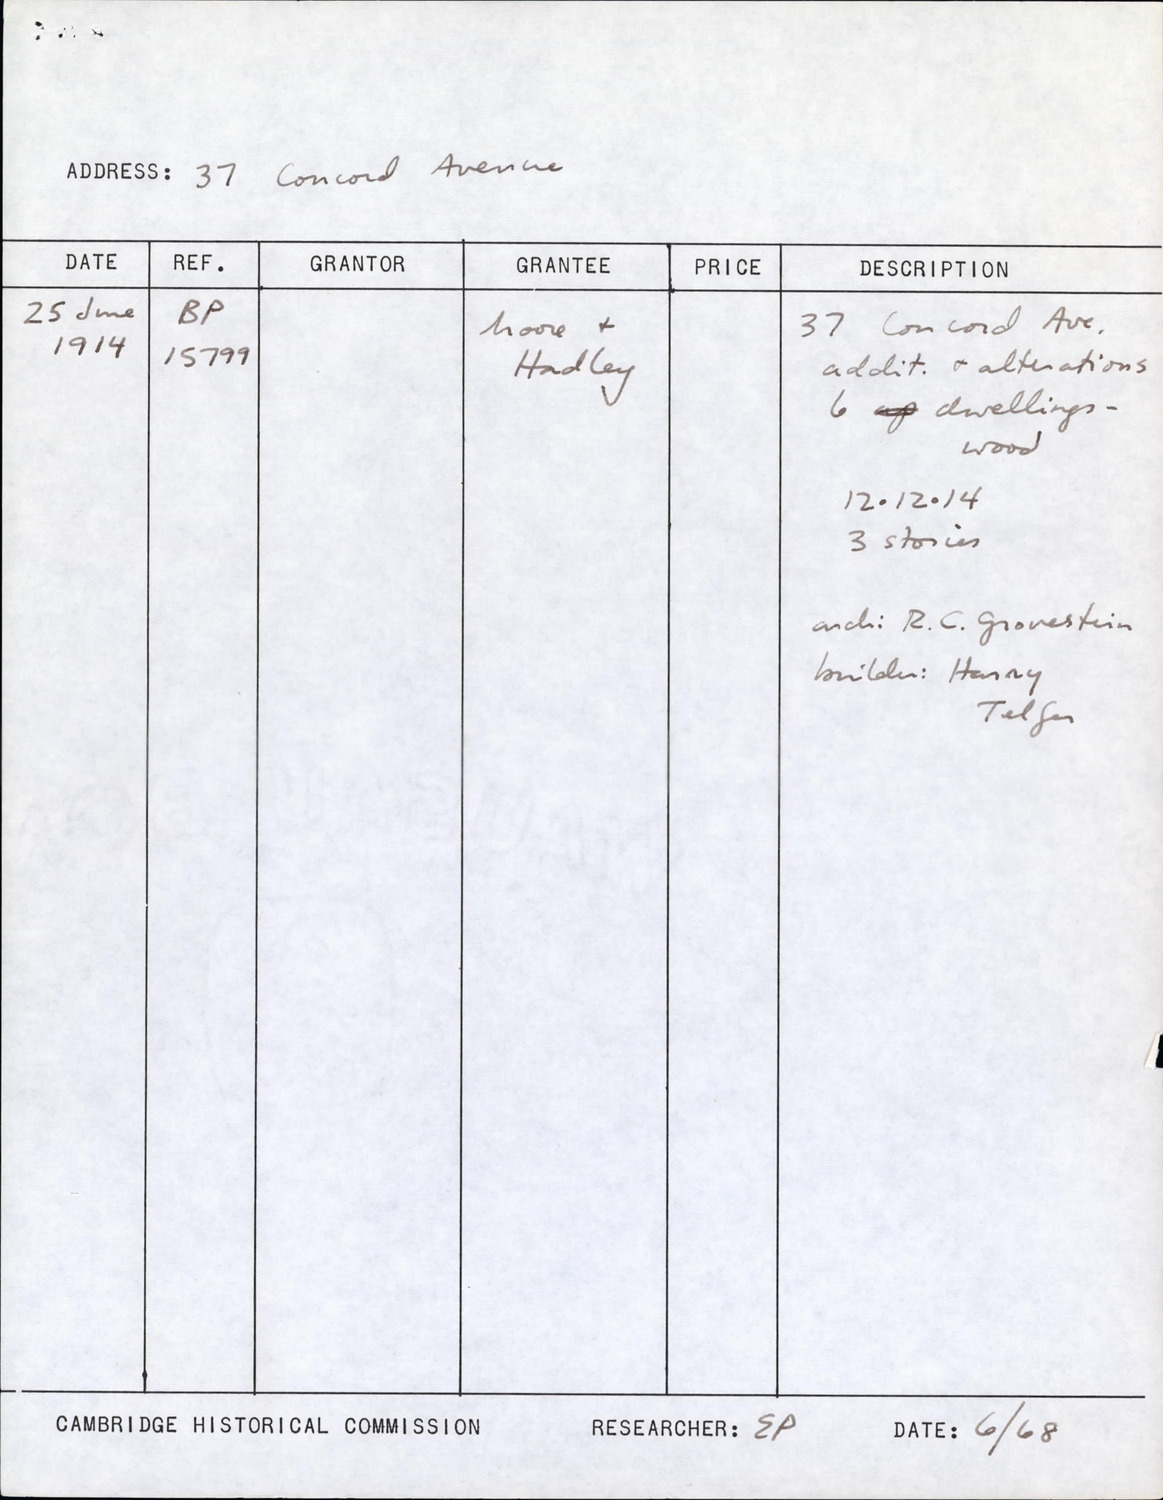 ADDRESS: 37 Concord Avenue
DATE REF. GRANTOR GRANTEE PRICE DESCRIPTION
25 June
1914
BP
15799
Moore +
Hadley
37 Concord Ave.
addit. + alterations
6 dwellings-
wood
12.12.14
3 stories
arch: R.C. Grovestein
builder: Harry
Telfer
CAMBRIDGE HISTORICAL COMMISSION RESEARCHER: EP DATE: 6/68